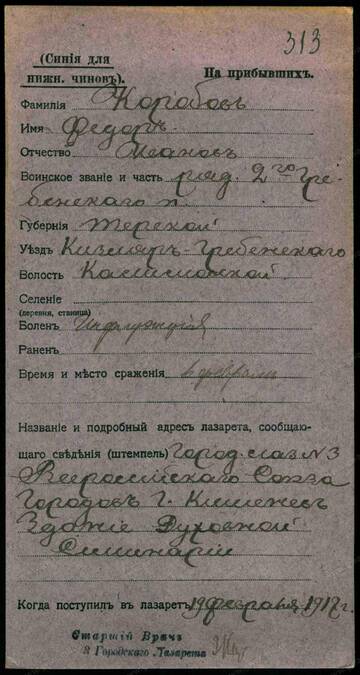 313
(Синія для
нижн. чиновъ).
На прибывшихъ.
Фамилія Коробовъ
Имя Федоръ
Отчество Ивановъ
Воинское званіе и часть ряд. 2го Гре-
бенского п.
Губернія Терской
Уѣздъ Кизляръ-Гребенского
Волость
Селеніе
(деревня, станица)
Боленъ Инфлуэнція
Раненъ
Время и мѣсто сраженія 6 февраля
Названіе и подробный адресъ лазарета, сообщаю-
щаго свѣдѣнія (штемпель) Город. лаз N 3
Всероссійского Союза
Городовъ г. Кишенев
Зданіе Духовной
Симинаріи
Когда поступилъ въ лазаретъ 19 февраля 1917 г.
Старшій Врачъ
3 Городского Лазарета